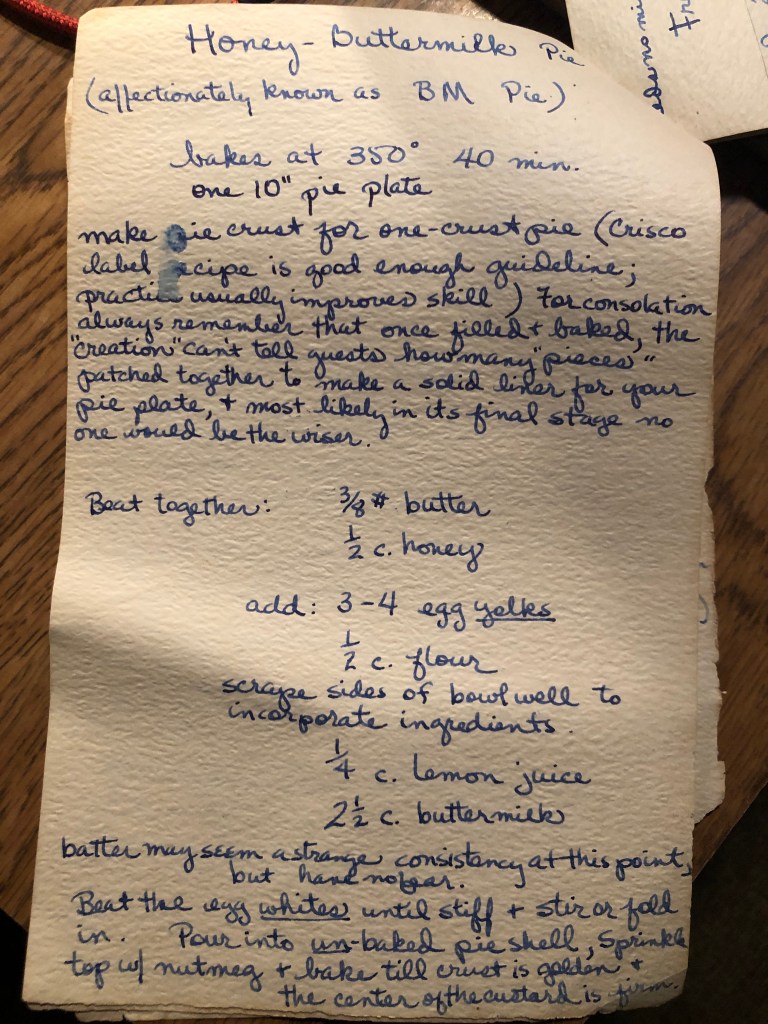 Honey-Buttermilk Pie
(affectionately known as BM Pie)
bakes at 350° 40 min.
one 10" pie plate
make pie crust for one-crust pie (Crisco
label recipe is good enough guideline;
practice usually improves skill) For consolation
always remember that once filled + baked, the
"creation" can't tell guests how many "pieces"
patched together to make a solid liner for your
pie plate, + most likely in its final stage no
one would be the wiser.
Beat together: 3/8 # butter
1/2 c. honey
add: 3-4 egg yelks
1/2 c. flour
scrape sides of bowl well to
incorporate ingredients.
1/4 c. lemon juice
2 1/2 c. buttermilk
batter may seem a strange consistency at this point,
but have no fear.
Beat the egg whites until stiff + stir or fold
in. Pour into un-baked pie shell, Sprinkle
top w/ nutmeg + bake till crust is golden +
the center of the custard is firm.